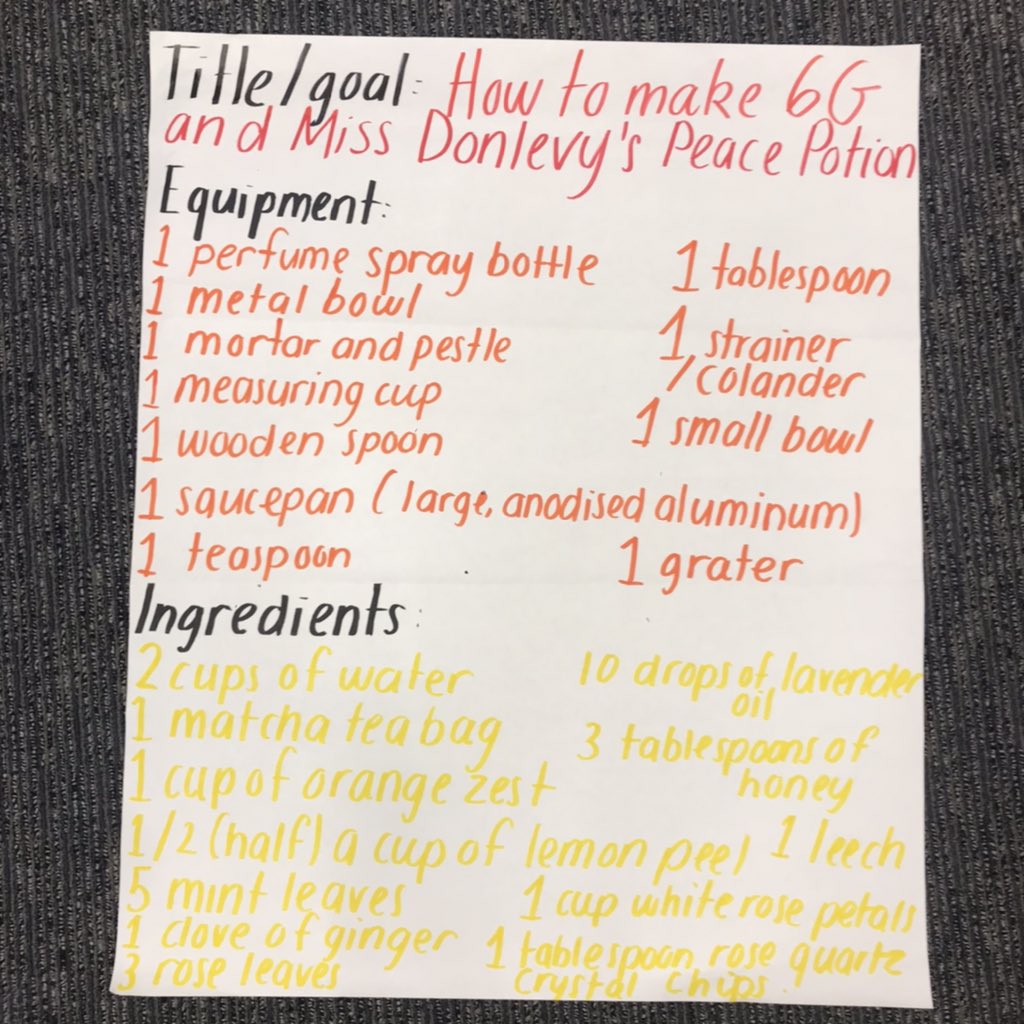 Title/goal: How to make 6G
and Miss Donlevy's Peace Potion
Equipment:
1 perfume spray bottle
1 tablespoon
1 metal bowl
1 mortar and pestle
1 strainer
/colander
1 measuring cup
1 small bowl
1 wooden spoon
1 saucepan (large, anodised aluminum)
1 teaspoon
1 grater
Ingredients:
2 cups of water
10 drops of lavender
oil
1 matcha tea bag
3 tablespoons of
honey
1 cup of orange zest
1/2 (half) a cup of lemon peel
1 leech
5 mint leaves
1 cup white rose petals
1 clove of ginger
1 tablespoon rose quartz
crystal chips.
3 rose leaves